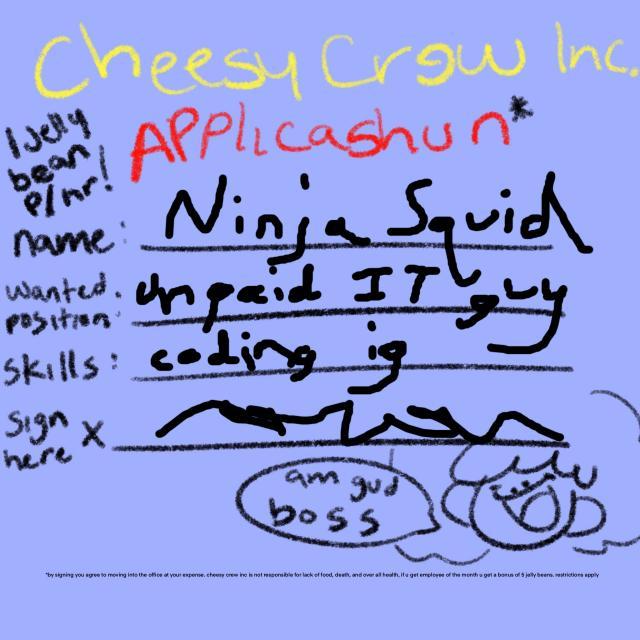 Cheesy Crew Inc.
Applicashun*
1 jelly
bean
p/hr!
name: Ninja Squid
wanted position: unpaid IT guy
skills: coding ig
sign here X
am gud
boss
*by signing you agree to moving into the office at your expense. cheesy crew inc is not responsible for lack of food, death, and over all health, if u get employee of the month u get a bonus of 5 jelly beans. restrictions apply